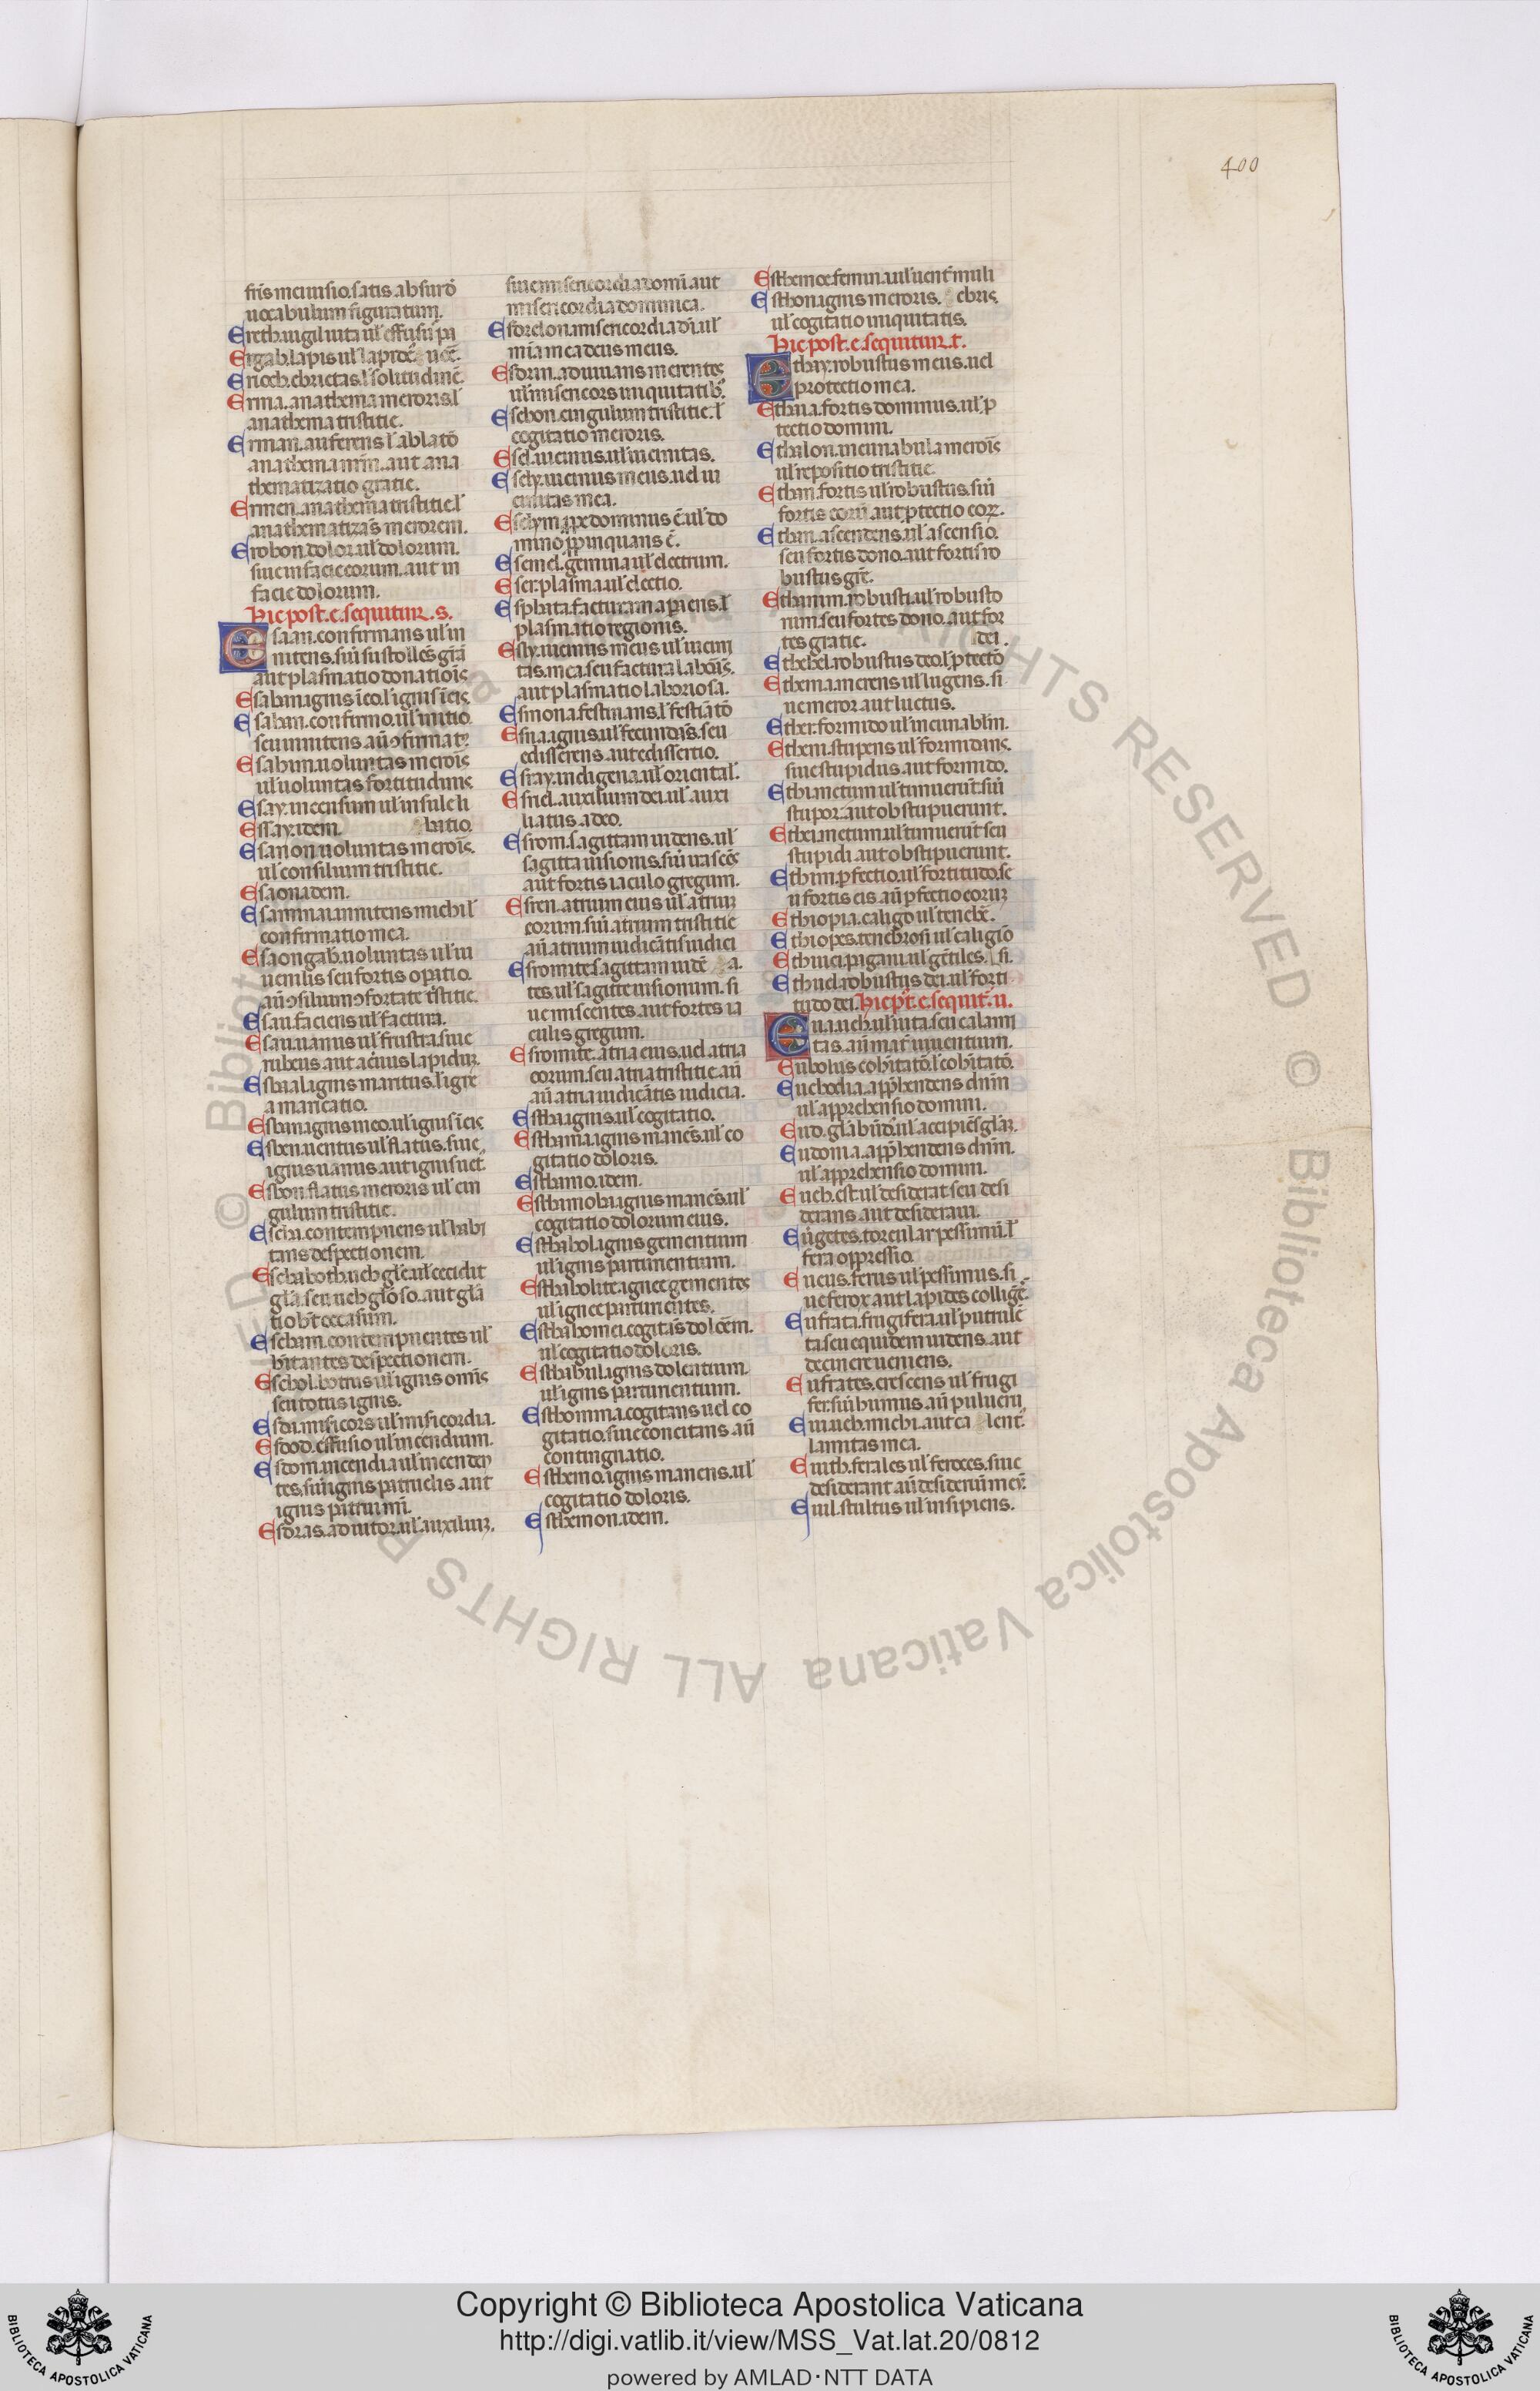 400
fr̄is mei uisio. satis absurdū
uocabulum figuratum.
Ereth. uigil iuita ul' effusū
Ergab. lapis ul'
Erioch. ebrietas. l' solitudinē.
Erma. anathema meroris. l'
anathema tristitie.
Erman. auferens l' ablatō
anathema aut ana
thematizatio gratie.
Ermen. anathema tristitie. l'
anathematizās merorem.
Erobon. dolor. ul' dolorum.
siue in facie eorum. aut in
facie dolorum.
Hic post. e. sequitur. s.
Esaan. confirmans ul' in
nitens. siū sustollēs grā
aut plasmatio donatiōis
Esaban. confirmo. ul' initio.
seu innitens
Esabim. uoluntas merōis
ul' uoluntas fortitudinis
Esay. incensum ul' insule li
Essay. idem. batio.
Esanon. uoluntas merōis.
ul' consilium tristitie.
Esaon. idem.
innitens michi l'
confirmatio mea.
Esaongab. uoluntas ul' iu
uenilis seu fortis
Esau. faciens ul' factura.
Esau. uanus ul' frustra. siue
rubeus. aut aceruus lapidum.
ignis maritus.
Esben. uentus ul' flatus. siue
ignis uanus. aut ignis
Esbon. flatus meroris ul' cin
gulum tristitie.
contempnens ul' habi
tans despectionem.
ul' cecidit
aut glā
occasum.
contempnentes ul'
bitantes despectionem.
Eschol. botrus ul' ignis omīs
seu totus ignis.
Esdai. misicors ul' misicordia.
Esdod. effusio ul' incendium.
Esdom. incendia ul' incenden
tes. siū ignis patruelis. aut
ignis patrui mī.
Esdras. adiutor. ul' auxilium.
siue misericordia domī. aut
misericordia dominica.
Esdrelon. misericordia dī. ul'
mīa mea deus meus.
adiuuans merentes
ul' misericors iniquitatib;
Esebon. cingulum tristitie. l'
cogitatio meroris.
Esel. uicinus. ul' uicinitas.
Esely. uicinus meus. uel ui
cinitas mea.
dominus ē. ul' do
mino ꝓpinquans ē.
Esemel. gemma ul' electrum.
Eser. plasma. ul' electio.
factura l'
plasmatio regionis.
Esly. uicinus meus ul' uicini
tas. mea. seu factura labōis.
aut plasmatio laboriosa.
Esmona. festinans. l' festinātō
Esna. ignis. ul' seu
edisserens. aut edissertio.
Esray. indigena. ul' oriental'.
Esriel. auxilium dei. ul' auxi
liatus. a deo.
Esrom. sagittam uidens. ul'
sagitta uisionis. siū
aut fortis iaculo gregum.
Esren. atrium eius ul' atrium
eorum. siū atrium tristitie
aū atrium iudicātis iudici
Esromite. sagittam uidē a.
tes. ul' sagitte uisionum. si
ue miscentes. aut fortes ia
culis gregum.
Esromite. atria eius. uel atria
eorum. seu atria tristitie. aū
aū atria iudicātis iudicia.
Estha. ignis. ul' cogitatio.
Esthama. ignis manēs. ul' co
gitatio doloris.
Esthamo. idem.
Esthamoba. ignis manēs. ul'
cogitatio dolorum eius.
Esthabol. ignis gementium
ul' ignis parturientium.
Esthabolite. ignee gementes
ul' ignee parturientes.
cogitās
ul' cogitatio doloris.
Esthabul. ignis dolentium.
ul' ignis parturientium.
Esthomma. cogitans uel co
gitatio. siue concitans. aū
contingnatio.
Esthemo. ignis manens. ul'
cogitatio doloris.
Esthemon. idem.
Esthemoe. femina. ul' muli
Esthon. ignis meroris. ebris.
ul' cogitatio iniquitatis.
Hic post. e. sequitur. t.
robustus meus. uel
protectio mea.
fortis dominus. ul' ꝓ
tectio domini.
Ethalon. incunabula merōis
ul' repositio tristitie.
Ethan. fortis ul' robustus. siū
fortis eorū. aut ꝓtectio eoꝝ.
ascendens. ul' ascensio.
seu fortis dono. aut fortis ro
bustus grē.
Ethanim. robusti. ul' robusto
rum. seu fortes dono. aut for
tes gratie. dei.
Ethebel. robustus deo. l' ꝓtectō
Ethema. merens ul' lugens. si
ue meror aut luctus.
Ether. formido ul'
Ethem. stupens ul' formidans.
siue stupidus. aut formido.
Ethi. metum ul' timuerūt. siū
stupor. aut obstupuerunt.
Ethei. metum. ul' timuerūt seu
stupidi. aut obstipuerunt.
Ethim. ꝑfectio. ul' fortitudo. se
u fortis eis aū ꝑfectio eorum
Ethiopia. caligo ul' tenebē.
Ethiopes. tenebrosi ul' caligīō
Ethnici. pagani. ul' gētiles. si.
Ethuel. robustus dei. ul' forti
tudo dei. Hic pt. e. sequit. u.
Eua. ueh. ul' uita. seu calami
tas. aū mat̄ uiuentium.
Eubolus
apꝑhendens dnīm
ul' apprehensio domini.
Eud. ul' accipiēs glām.
Eudoma. apꝑhendens dnīm.
ul' apprehensio domini.
Eueh. est. ul' desiderat seu desi
derans. aut desideraui.
Eugetes. torcular pessimū. l'
fera oppressio.
Eueus. ferus ul' pessimus. si
ue ferox aut lapides colligē.
Eufrata. frugifera. ul'
ta seu equidem uidens. aut
de cinere ueniens.
Eufrates. crescens ul' frugi
fer. siū humus. aū puluem
Eui. ueh. michi. aut ca lent.
lamitas mea.
Euith. ferales ul' feroces. siue
desiderant aū desideriū
Euil. stultus ul' insipiens.
© Biblioteca Apostolica Vaticana ALL RIGHTS RESERVED
Copyright © Biblioteca Apostolica Vaticana
http://digi.vatlib.it/view/MSS_Vat.lat.20/0812
powered by AMLAD·NTT DATA
BIBLIOTECA APOSTOLICA VATICANA
BIBLIOTECA APOSTOLICA VATICANA